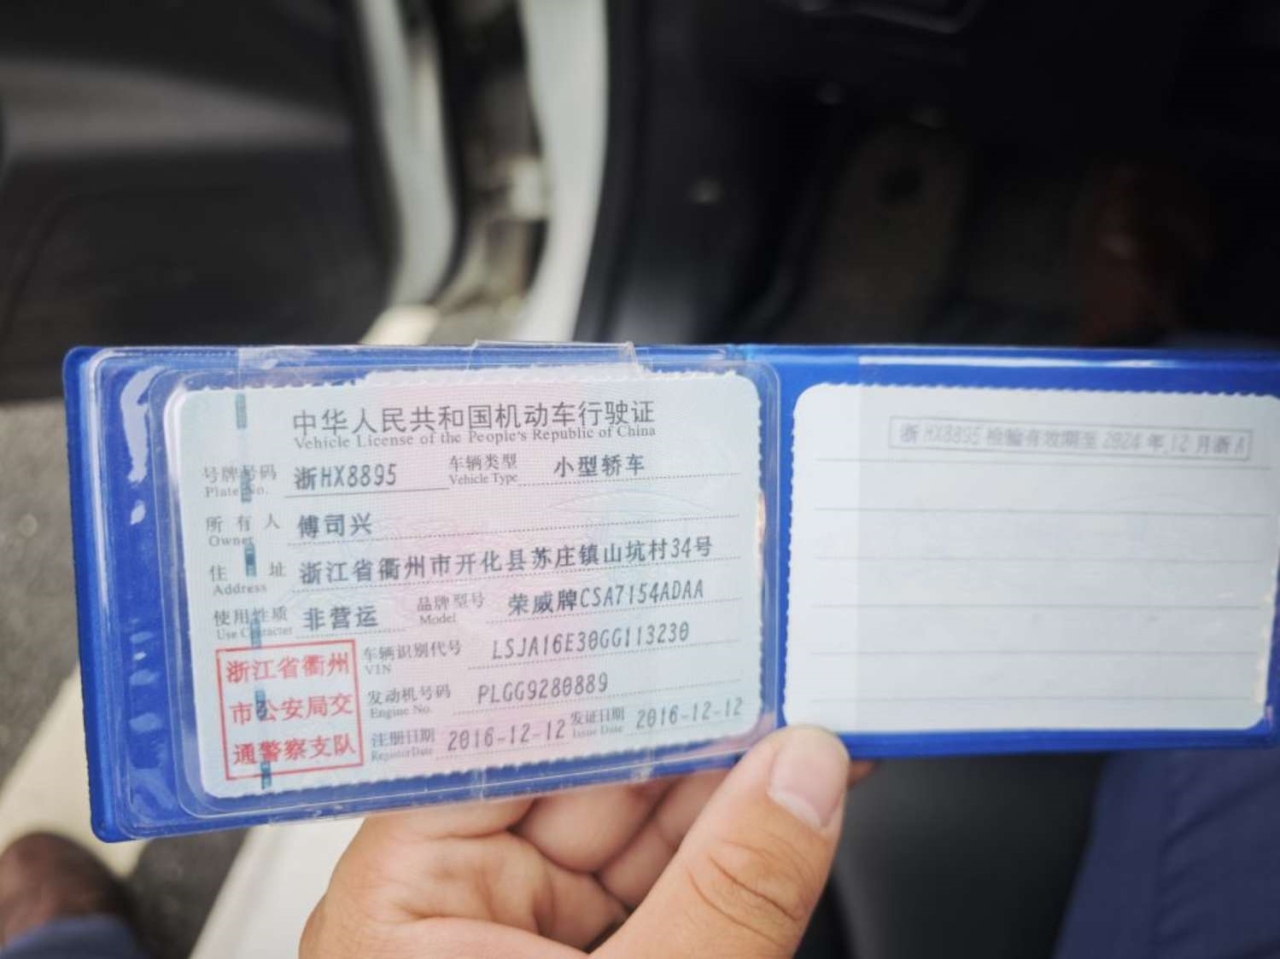 中华人民共和国机动车行驶证
Vehicle License of the People's Republic of China
号牌号码 浙HX8895 车辆类型 小型轿车
Plate No. Vehicle Type
所有人 傅司兴
Owner
住址 浙江省衢州市开化县苏庄镇山坑村34号
Address
使用性质 非营运 品牌型号 荣威牌CSA7154ADAA
Use Character Model
车辆识别代号 LSJA16E30GG113230
VIN
发动机号码 PLGG9280889
Engine No.
注册日期 2016-12-12 发证日期 2016-12-12
Register Date Issue Date
浙江省衢州
市公安局交
通警察支队
浙HX8895 检验有效期至2024年12月浙A